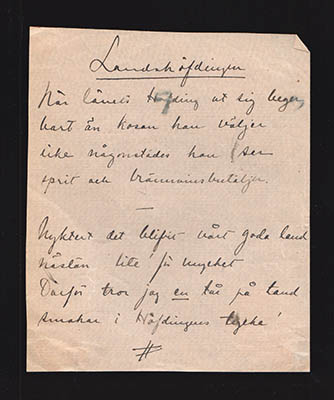 Landshöfdingen
När länets Höfding ut sig beger
vart än kosan han väljer
icke någonstädes han ser
sprit och brännvinsbutäljer.
—
Nyktert det blifvit vårt goda land
nästan lite för mycket
Därför tror jag en tår på tand
smakar i Höfdingens tycke!